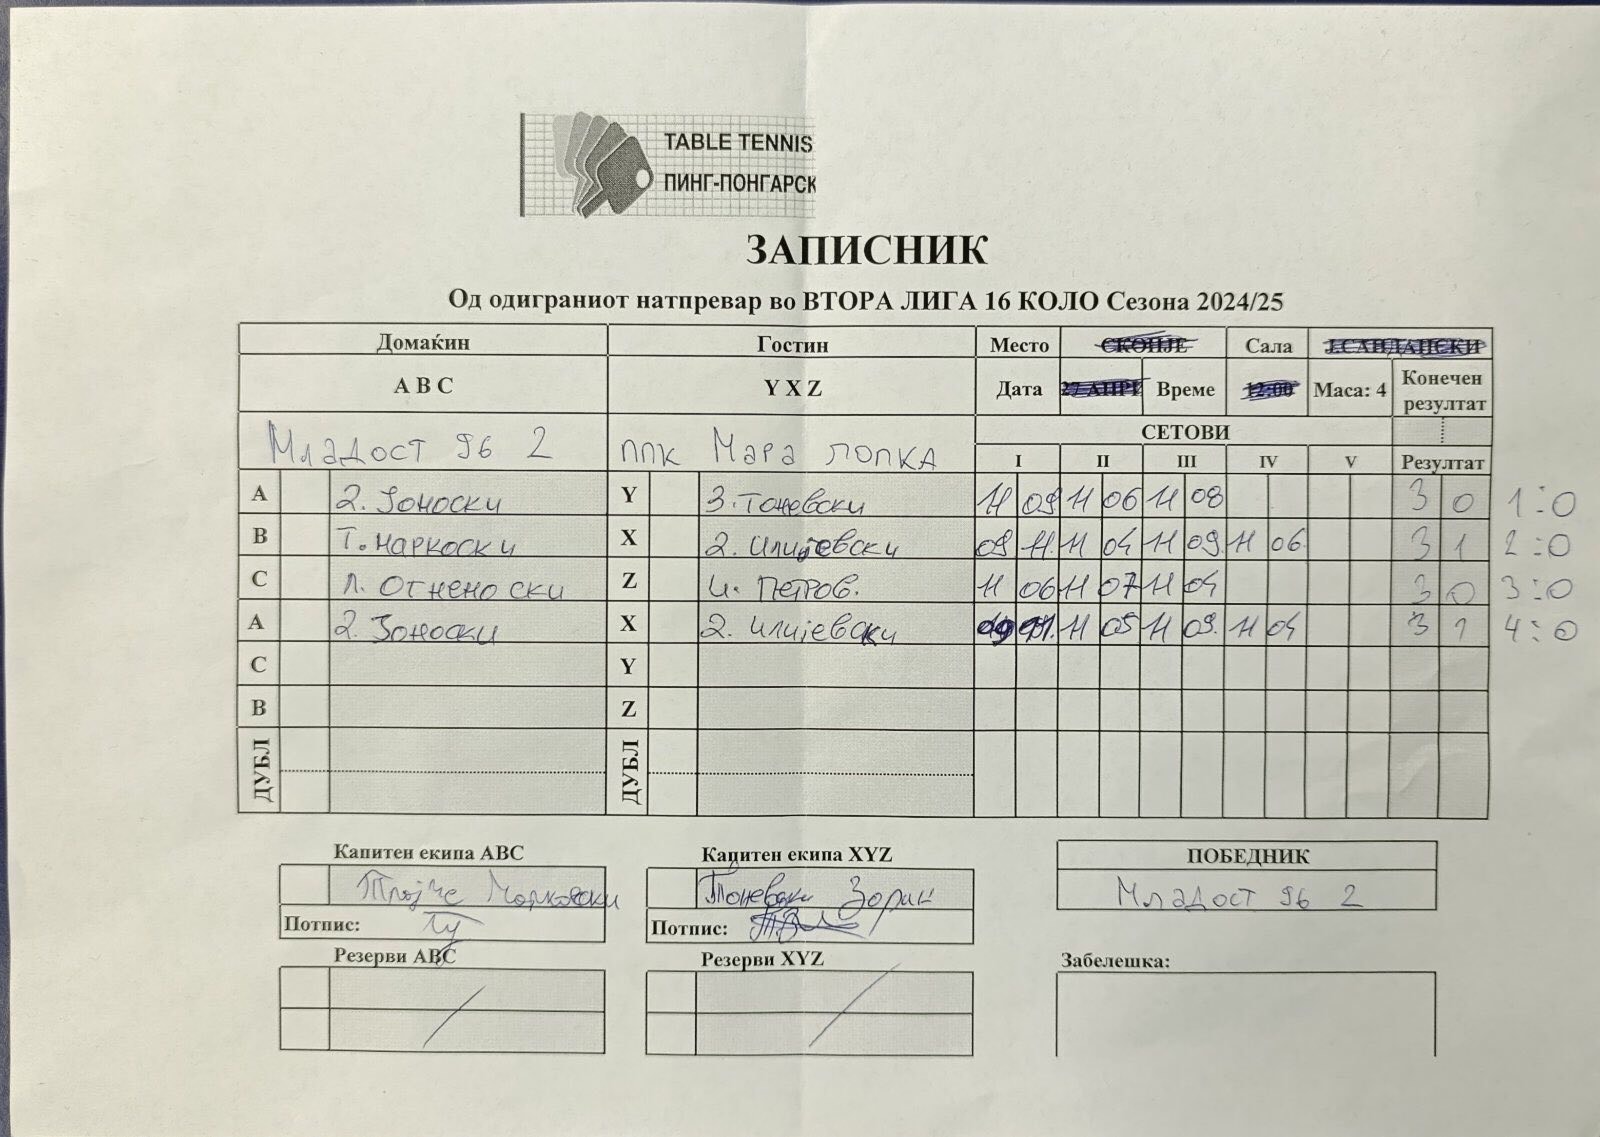 TABLE TENNIS
ПИНГ-ПОНГАРСК
ЗАПИСНИК
Од одиграниот натпревар во ВТОРА ЛИГА 16 КОЛО Сезона 2024/25
Домаќин Гостин Место СКОПЈЕ Сала Ј.САНДАНСКИ
A B C Y X Z Дата 27 АПРИ Време 12:00 Маса: 4 Конечен резултат
Младост 96 2 ППК Мара ПОПКА СЕТОВИ
I II III IV V Резултат
A Y З. Тоневски 11 09 11 06 11 08 3 0 1:0
B X 2. Илијевски 09 11 11 04 11 09 11 06 3 1 2:0
C Л. Огненоски Z И. Петров. 11 06 11 07 11 04 3 0 3:0
A 2. Зоноски X 2. Илијевски 09 11 11 05 11 09 11 04 3 1 4:0
C Y
B Z
ДУБЛ ДУБЛ
Капитен екипа ABC Капитен екипа XYZ ПОБЕДНИК
Тоневски Зоран Младост 96 2
Потпис: Потпис:
Резерви ABC Резерви XYZ Забелешка: